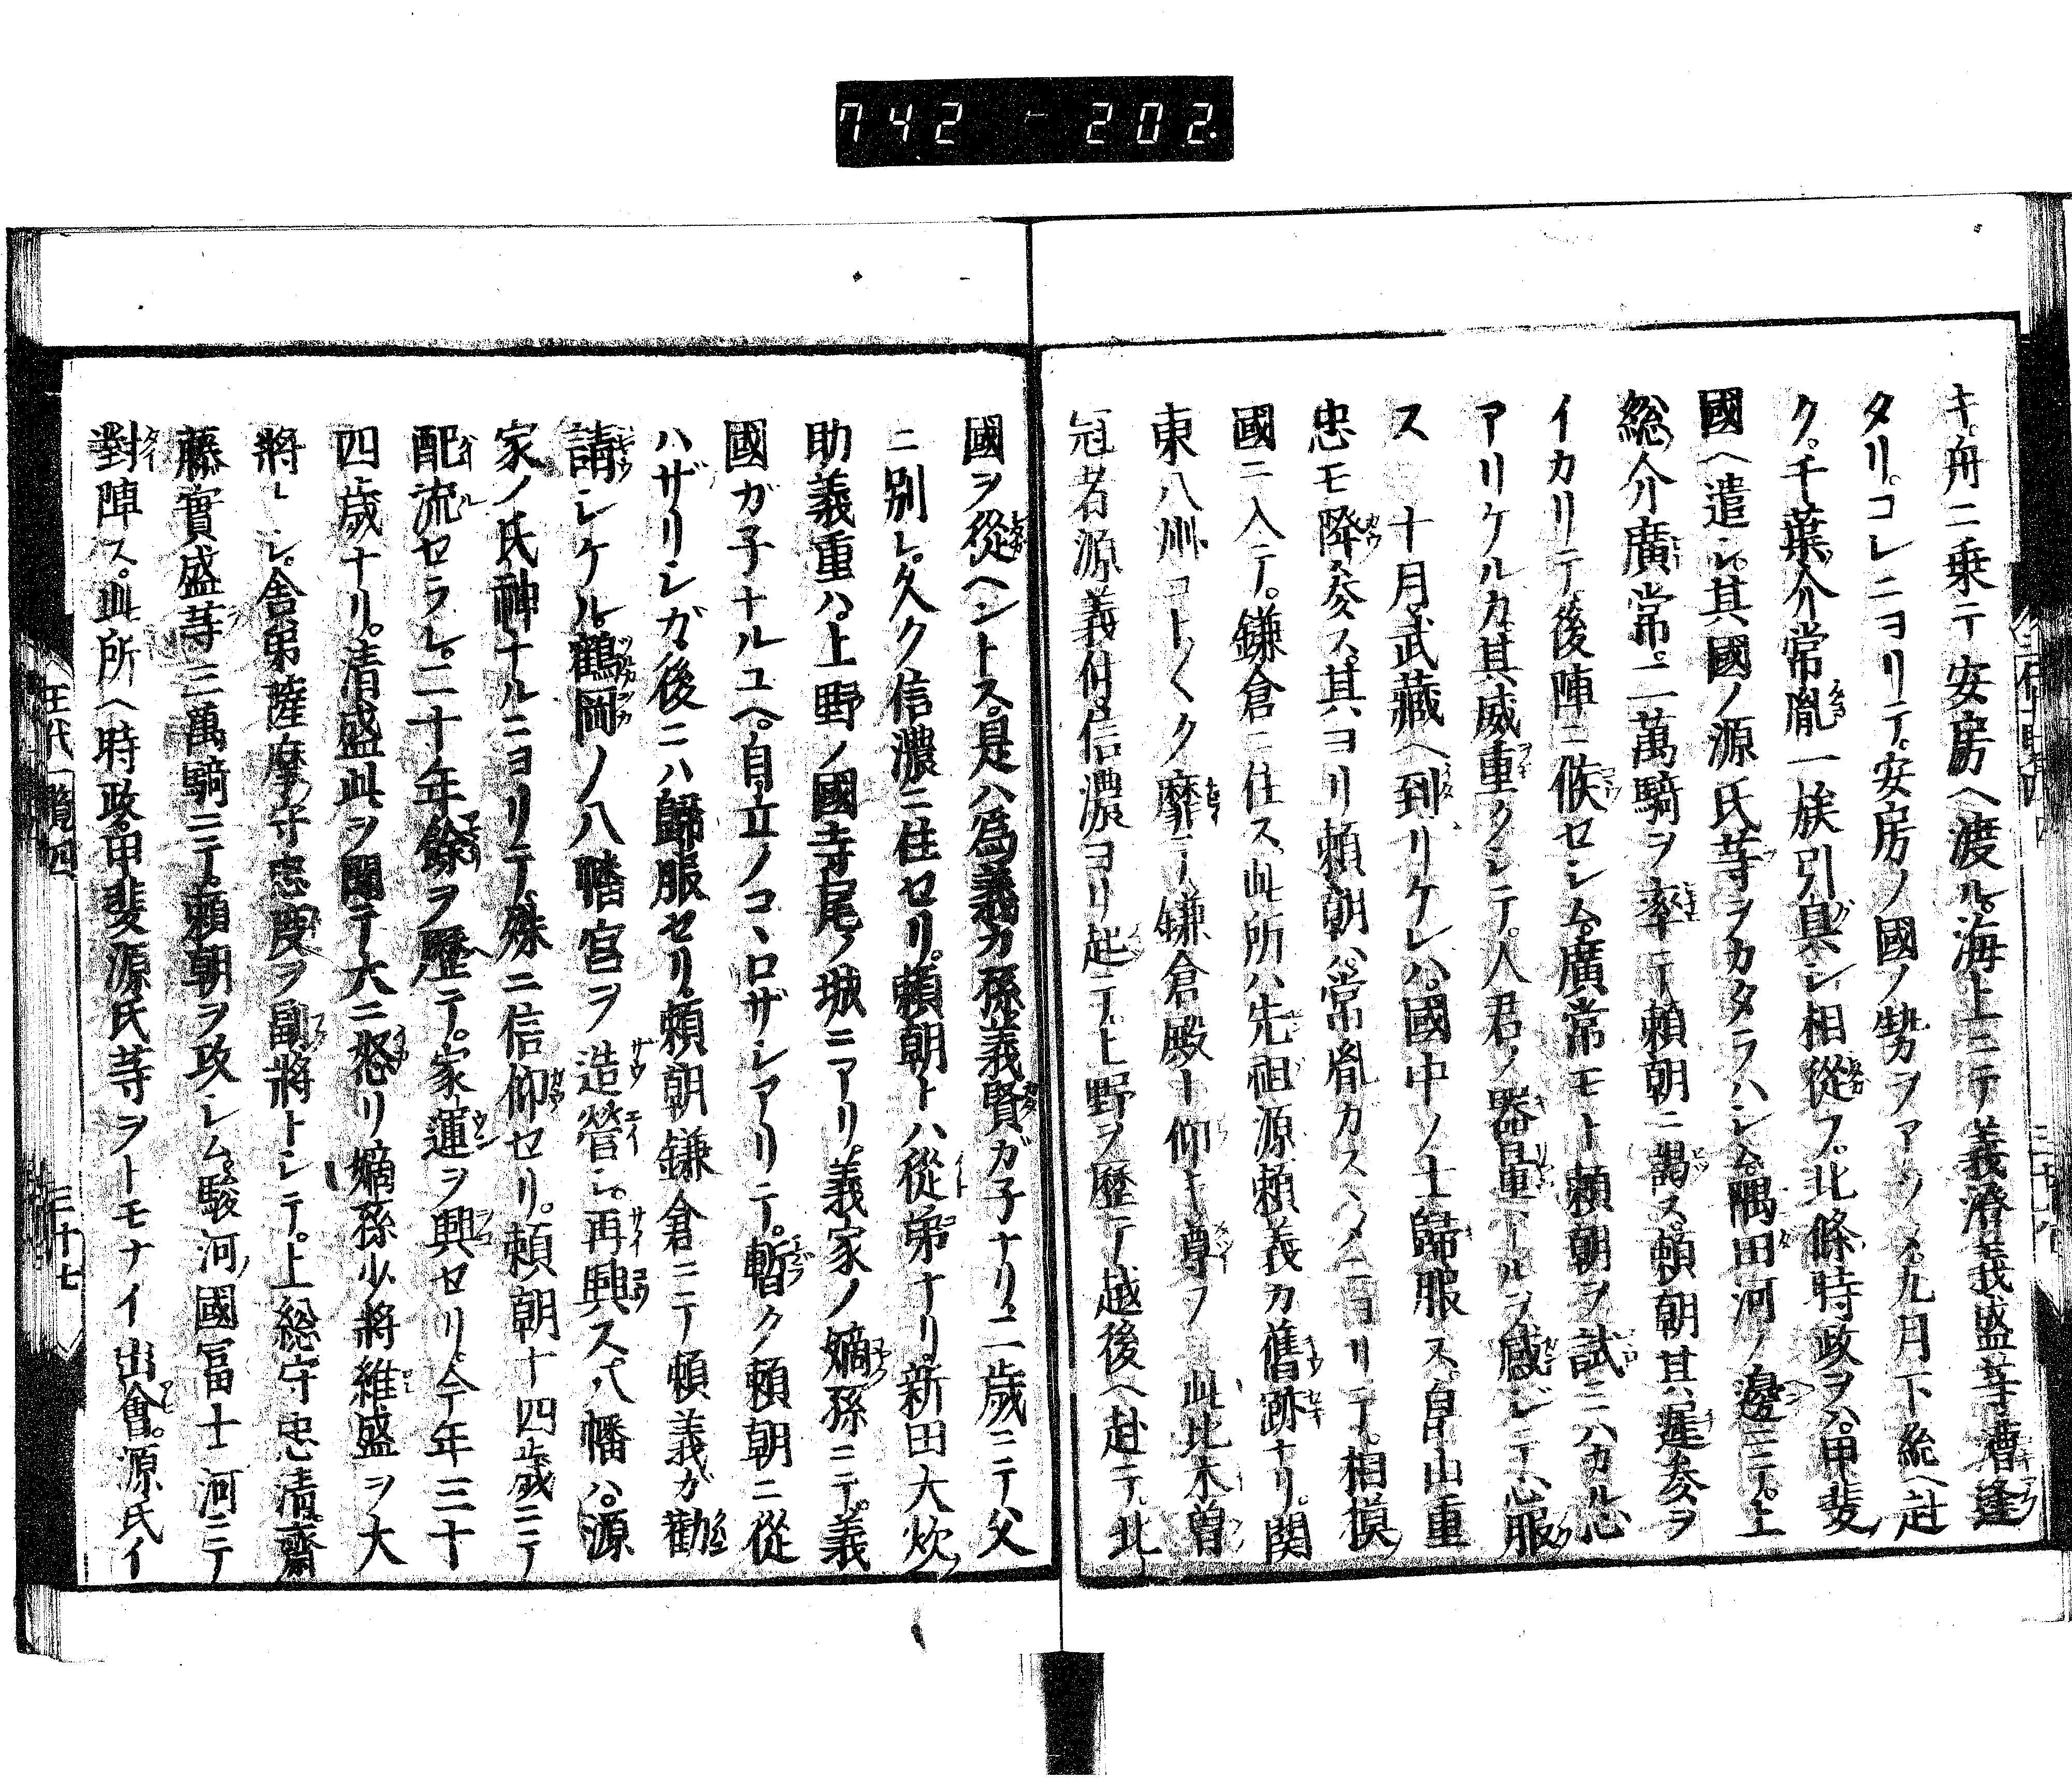 742-202.
キ。舟ニ乗テ安房ヘ渡ル。海上ニテ義澄義盛等漕逢
タリ。コレニヨリテ。安房ノ國ノ勢ヲアツメ。九月下総ヘ赴
ク。千葉介常胤一族引具シ相從フ。北條時政ヲハ。甲斐
國ヘ遣シ。其國ノ源氏等ヲカタラハシム。隅田河ノ邊ニテ。上
総介廣常。二萬騎ヲ率テ頼朝ニ謁ス。頼朝其遲参ヲ
イカリテ。後陣ニ候セシム。廣常モト頼朝ヲ試ニハカル心
アリケルカ。其威重クシテ。人君ノ器量アルヲ感ジテ心服
ス 十月武藏ヘ到リケレハ。國中ノ士歸服ス。畠山重
忠モ降参ス。其ヨリ頼朝ハ。常胤カスヽメニヨリテ。相模
國ニ入テ。鎌倉ニ住ス。此所ハ先祖源頼義カ舊跡ナリ。関
東八州コト〱ク靡テ鎌倉殿ト仰キ尊フ 此比木曽
冠者源義仲。信濃ヨリ起テ。上野ヲ歴テ越後ヘ赴テ。北
國ヲ從ヘントス。是ハ為義カ孫義賢ガ子ナリ。二歳ニテ父
ニ別レ。久ク信濃ニ住セリ。頼朝トハ從弟ナリ。新田大炊
助義重ハ。上野ノ國寺尾ノ城ニアリ。義家ノ嫡孫ニテ。義
國ガ子ナルユヘ。自立ノコヽロザシアリテ。暫ク頼朝ニ從
ハザリシガ。後ニハ歸服セリ。頼朝鎌倉ニテ頼義ガ勸
請シケル。鶴岡ノ八幡宮ヲ 造營シ。再興ス。八幡ハ。源
家ノ氏神ナルニヨリテ。殊ニ信仰セリ。頼朝十四歳ニテ
配流セラレ。二十年餘ヲ歴テ。家運ヲ興セリ。今年三十
四歳ナリ。清盛此ヲ聞テ大ニ怒リ嫡孫少將維盛ヲ大
將トシ。舎弟薩摩守忠度ヲ副將トシテ。上総守忠清。齋
藤實盛等三萬騎ニテ。頼朝ヲ攻シム。駿河國冨士河ニテ
對陣ス。此所ヘ時政。甲斐源氏等ヲトモナイ出會。源氏イ
王代一覧四 三十七